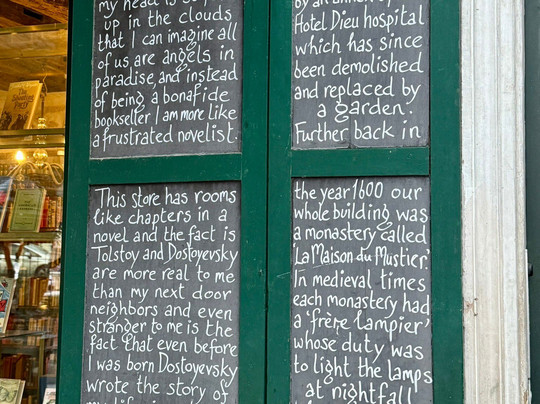 my head is so far
up in the clouds
that I can imagine all
of us are angels in
paradise, and instead
of being a bonafide
bookseller I am more like
a frustrated novelist.
This store has rooms
like chapters in a
novel and the fact is
Tolstoy and Dostoyevsky
are more real to me
than my next door
neighbors and even
stranger to me is the
fact that even before
I was born Dostoyevsky
wrote the story of
my life in
by an
Hotel Dieu hospital
which has since
been demolished
and replaced by
a garden.
Further back in
the year 1600 our
whole building was
a monastery called
'La Maison du Mustier'.
In medieval times
each monastery had
a 'frère lampier'
whose duty was
to light the lamps
at nightfall